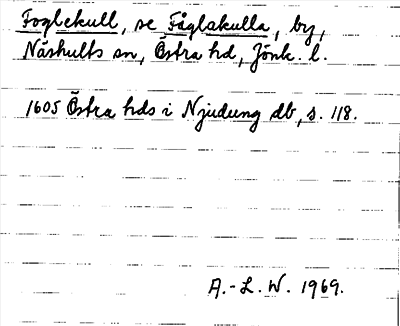 Foglekull, se Fåglakulla, by,
Näshults sn, Östra hd, Jönk. l.
1605 Östra hds i Njudung db, s. 118.
A.-L. W. 1969.